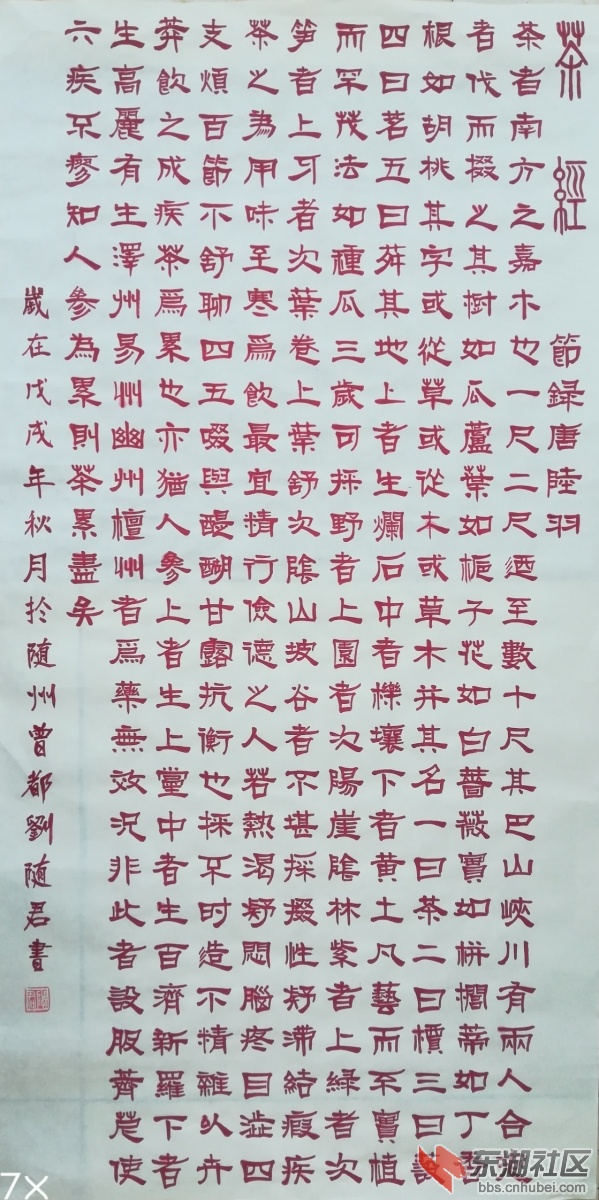 茶經 節錄唐陸羽
茶者南方之嘉木也一尺二尺迺至數十尺其巴山峽川有兩人合
者伐而掇之其樹如瓜蘆葉如梔子花如白薔薇實如栟櫚蒂如丁
根如胡桃其字或從草或從木或草木并其名一曰茶二曰檟三曰蔎
四曰茗五曰荈其地上者生爛石中者櫟壤下者黄土凡藝而不實植
而罕茂法如種瓜三歲可採野者上園者次陽崖陰林紫者上綠者次
笋者上牙者次葉卷上葉舒次陰山坡谷者不堪採掇性凝滯結瘕疾
茶之為用味至寒爲飲最宜情行儉德之人若熱渴凝悶腦疼目澀四
支煩百節不舒聊四五啜與醍醐甘露抗衡也採不时造不情雜以卉
莽飲之成疾茶爲累也亦猶人參上者生上黨中者生百濟新羅下者
生高麗有生澤州易州幽州檀州者爲藥無效況非此者設服薺苨使
六疾不瘳知人參為累則茶累盡矣
歲在戊戌年秋月於随州曾都劉随君書
7×
东湖社区
bbs.cnhubei.com